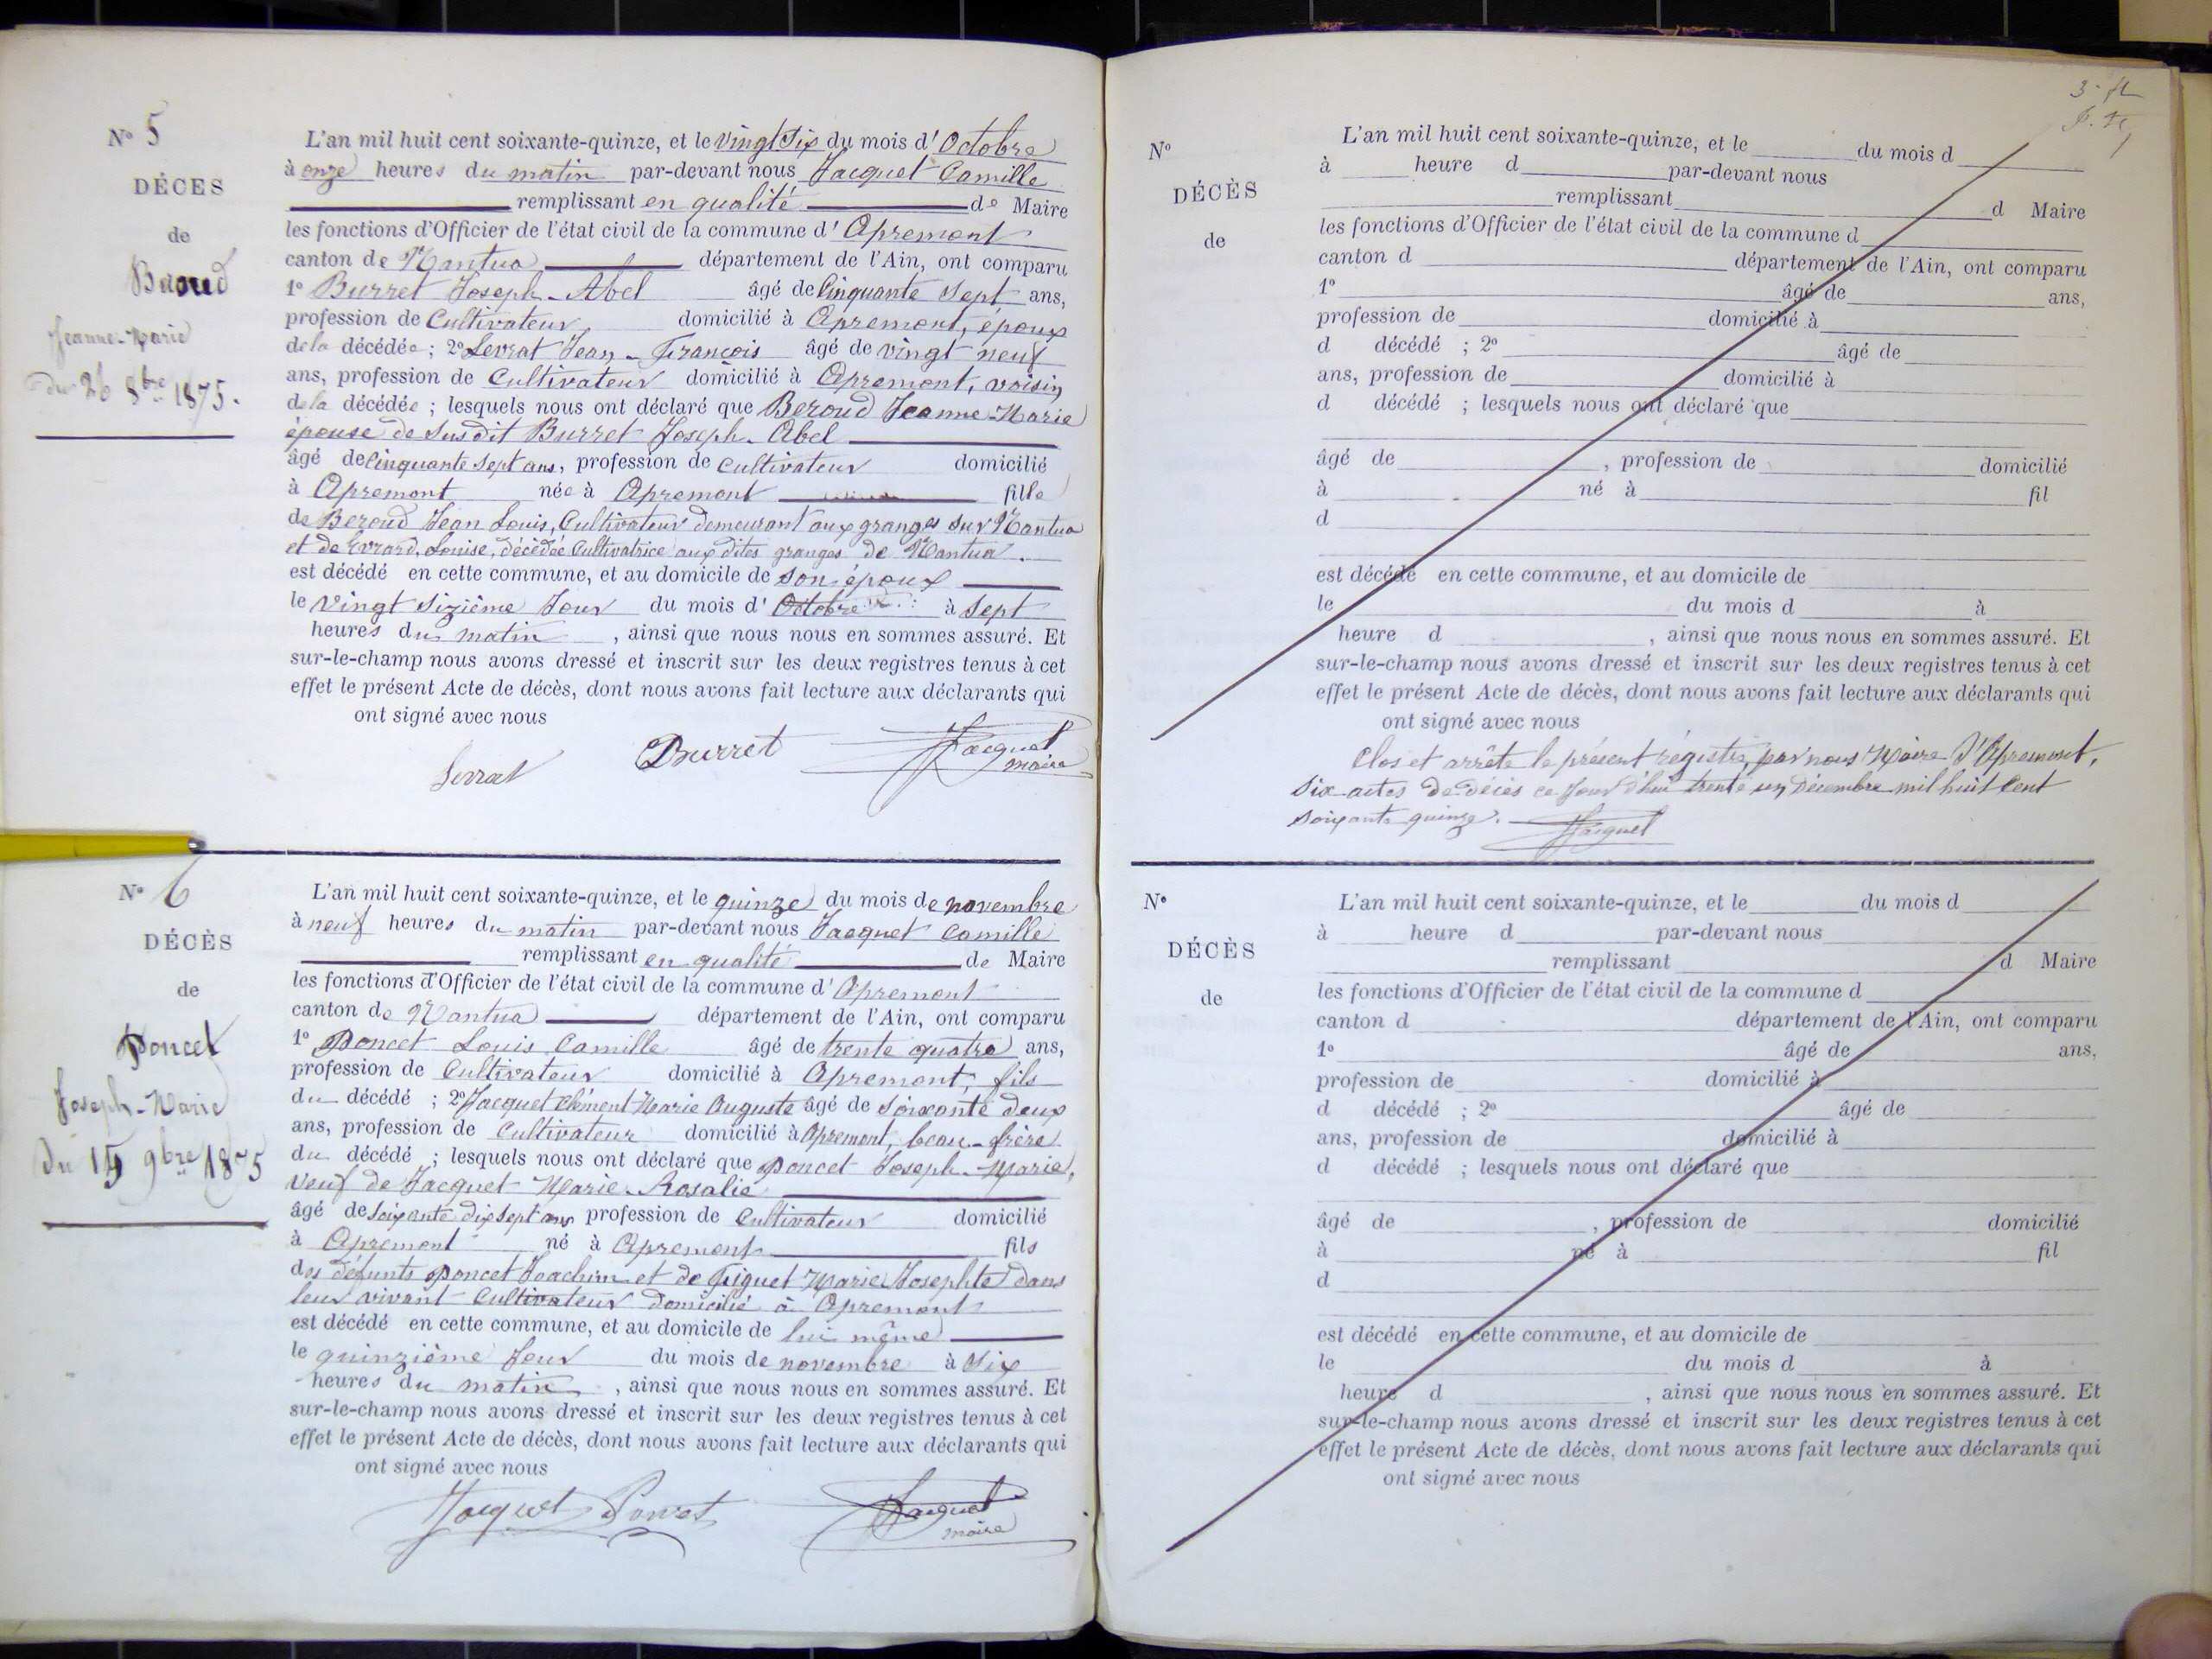 N° 5
DÉCES
de
Beroud
Jeanne-Marie
du 26 8bre 1875.
L'an mil huit cent soixante-quinze, et le vingt six du mois d'Octobre
à onze heures du matin par-devant nous Jacquet Camille
remplissant en qualité de Maire
les fonctions d'Officier de l'état civil de la commune d'Apremont
canton de Nantua département de l'Ain, ont comparu
1° Burret Joseph-Abel âgé de Cinquante Sept ans,
profession de Cultivateur domicilié à Apremont, époux
de la décédée ; 2° Levrat Jean-François âgé de vingt neuf
ans, profession de Cultivateur domicilié à Apremont, voisin
de la décédée ; lesquels nous ont déclaré que Beroud Jeanne-Marie
épouse de Susdit Burret Joseph-Abel
âgé de Cinquante Sept ans, profession de Cultivateur domicilié
à Apremont née à Apremont fille
de Beroud Jean Louis, Cultivateur demeurant aux granges sur Nantua
et de Evrard, Louise, décédée Cultivatrice aux dites granges de Nantua.
est décédé en cette commune, et au domicile de son époux
le Vingt Sizième Jour du mois d'Octobre à Sept
heures du matin , ainsi que nous nous en sommes assuré. Et
sur-le-champ nous avons dressé et inscrit sur les deux registres tenus à cet
effet le présent Acte de décès, dont nous avons fait lecture aux déclarants qui
ont signé avec nous
Levrat Burret Jacquet
maire
N° 6
DÉCÈS
de
Poncet
Joseph-Marie
du 15 9bre 1875
L'an mil huit cent soixante-quinze, et le quinze du mois de novembre
à neuf heures du matin par-devant nous Jacquet Camille
remplissant en qualité de Maire
les fonctions d'Officier de l'état civil de la commune d'Apremont
canton de Nantua département de l'Ain, ont comparu
1° Poncet Louis Camille âgé de trente quatre ans,
profession de Cultivateur domicilié à Apremont, fils
du décédé ; 2° Jacquet Clément Marie Auguste âgé de Soixante deux
ans, profession de Cultivateur domicilié à Apremont, beau-frère
du décédé ; lesquels nous ont déclaré que Poncet Joseph-Marie,
veuf de Jacquet Marie-Rosalie
âgé de soixante dix sept ans profession de Cultivateur domicilié
à Apremont né à Apremont fils
des défunts Poncet Joachim et de Figuet Marie Josephte dans
leur vivant Cultivateur domicilié à Apremont
est décédé en cette commune, et au domicile de lui même
le quinzième Jour du mois de novembre à Six
heures du matin , ainsi que nous nous en sommes assuré. Et
sur-le-champ nous avons dressé et inscrit sur les deux registres tenus à cet
effet le présent Acte de décès, dont nous avons fait lecture aux déclarants qui
ont signé avec nous
Jacquet Poncet Jacquet
maire
N°
DÉCÈS
de
L'an mil huit cent soixante-quinze, et le du mois d
à heure d par-devant nous
remplissant d Maire
les fonctions d'Officier de l'état civil de la commune d
canton d département de l'Ain, ont comparu
1° âgé de ans,
profession de domicilié à
d décédé ; 2° âgé de
ans, profession de domicilié à
d décédé ; lesquels nous ont déclaré que
âgé de , profession de domicilié
à né à fil
d
est décédé en cette commune, et au domicile de
le du mois d à
heure d , ainsi que nous nous en sommes assuré. Et
sur-le-champ nous avons dressé et inscrit sur les deux registres tenus à cet
effet le présent Acte de décès, dont nous avons fait lecture aux déclarants qui
ont signé avec nous
Clos et arrêté le présent régistre, par nous Maire d'Apremont,
Six actes de décès ce Jour d'hui trente un Décembre mil huit Cent
soixante quinze. Jacquet
N°
DÉCÈS
de
L'an mil huit cent soixante-quinze, et le du mois d
à heure d par-devant nous
remplissant d Maire
les fonctions d'Officier de l'état civil de la commune d
canton d département de l'Ain, ont comparu
1° âgé de ans,
profession de domicilié à
d décédé ; 2° âgé de
ans, profession de domicilié à
d décédé ; lesquels nous ont déclaré que
âgé de , profession de domicilié
à né à fil
d
est décédé en cette commune, et au domicile de
le du mois d à
heure d , ainsi que nous nous en sommes assuré. Et
sur-le-champ nous avons dressé et inscrit sur les deux registres tenus à cet
effet le présent Acte de décès, dont nous avons fait lecture aux déclarants qui
ont signé avec nous